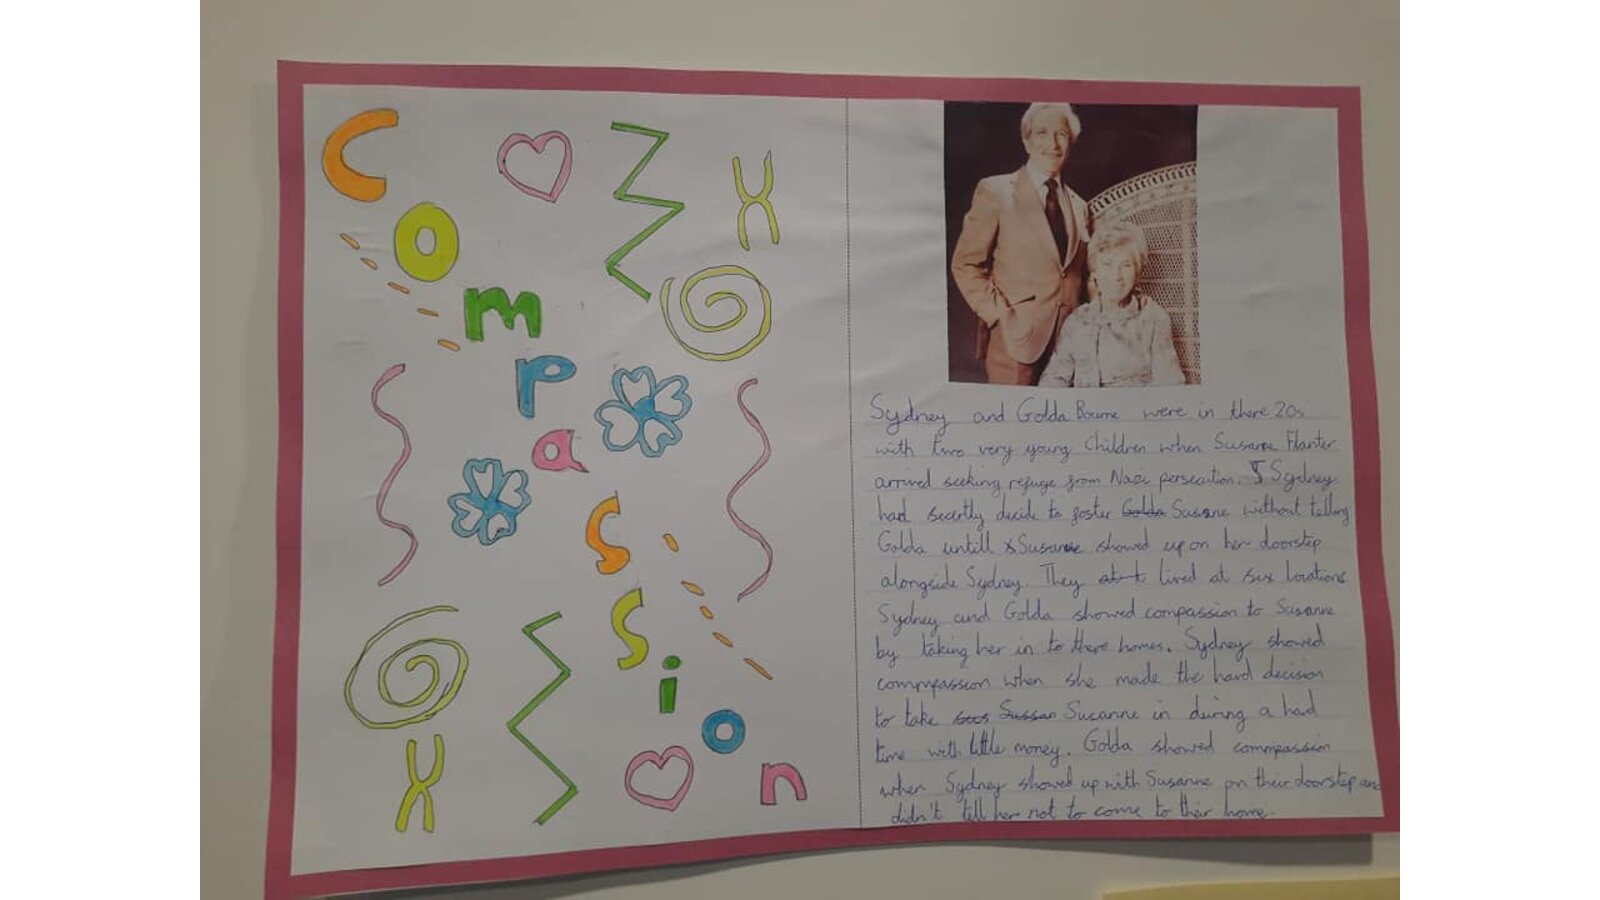 Compassion
Sydney and Golda Bourne were in there 20s
with two very young Children when Susanne Flanter
arrived seeking refuge from Nazi persecution. Sydney
had secertly decide to foster Golda Susanne without telling
Golda untill Susanne showed up on her doorstep
alongside Sydney. They lived at six locations
Sydney and Golda showed compassion to Susanne
by taking her in to there homes. Sydney showed
commpassion when she made the hard decision
to take sus Sussan Susanne in during a hard
time with little money. Golda showed commpassion
when Sydney showed up with Susanne on their doorstep and
didn't tell her not to come to their home.